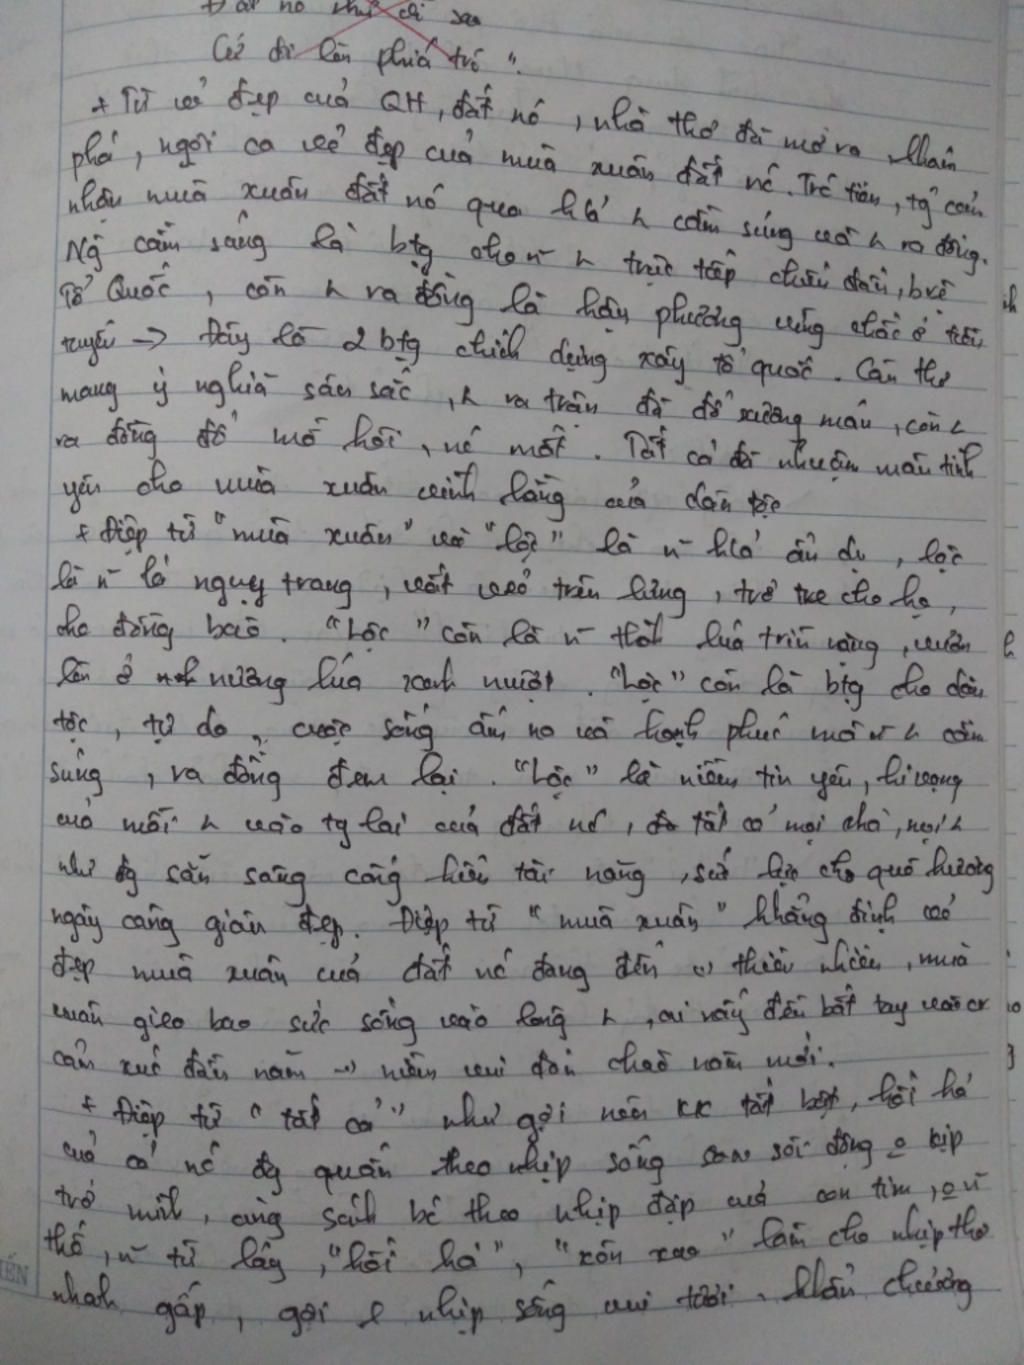 Đất nc như vì sao
Cứ đi lên phía trc".
+ Từ vẻ đẹp của QH, đất nc, nhà thơ đã mở ra khám
phá, ngợi ca vẻ đẹp của mùa xuân đất nc. Trc tiên, tg cảm
nhận mùa xuân đất nc qua h/ả cầm súng và ra đồng.
Ng cầm súng là btg cho trực tiếp chiến đấu, bvệ
Tổ Quốc, còn ra đồng là hậu phương vững chắc ở tiền
tuyến -> Đây là 2 btg chính dựng xây tổ quốc. Câu thơ
mang ý nghĩa sâu sắc, ra trận đã đổ xương máu, còn
ra đồng đổ mồ hôi, nc mắt. Tất cả đã nhuận máu tình
yêu cho mùa xuân vĩnh hằng của dân tộc
+ Điệp từ "mùa xuân" và "lộc" là h/ả ẩn dụ, lộc
là lá nguỵ trang, vắt vẻo trên lưng, trở che cho họ,
cho đồng bào. "Lộc" còn là lúa trĩu vàng, vươn
lên ở nương lúa xanh mượt. "Lộc" còn là btg cho dân
tộc, tự do, cuộc sống ấm no và hạnh phúc mà cầm
súng, ra đồng đem lại. "Lộc" là niềm tin yêu, hi vọng
của mỗi vào tg lai của đất nc, tất cả mọi nhà, mọi
như đg sẵn sàng cống hiến tài năng, sức lực cho quê hương
ngày càng giàu đẹp. Điệp từ "mùa xuân" khẳng định
đẹp mùa xuân của đất nc đang đến thiên nhiên, mùa
xuân gieo bao sức sống vào lòng, ai nấy đều bắt tay vào
cảm xúc đầu năm -> niềm vui đón chào năm mới.
+ Điệp từ "tất cả" như gợi nên KK tất bật, hối hả
của cả nc đg quấn theo nhịp sống sôi động kịp
trở mình, cùng sánh bc theo nhịp đập của con tim, vì
thế, từ láy, "hối hả", "xôn xao" làm cho nhịp thơ
nhanh gấp, gợi nhịp sống vui tươi, khẩn trương